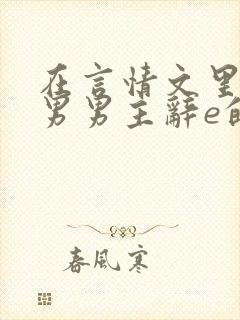 在言情文里
男男主辞e的
春風寒